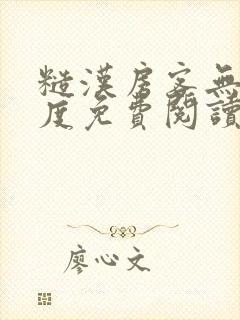 糙漢房客無
度免費閱讀
廖心文